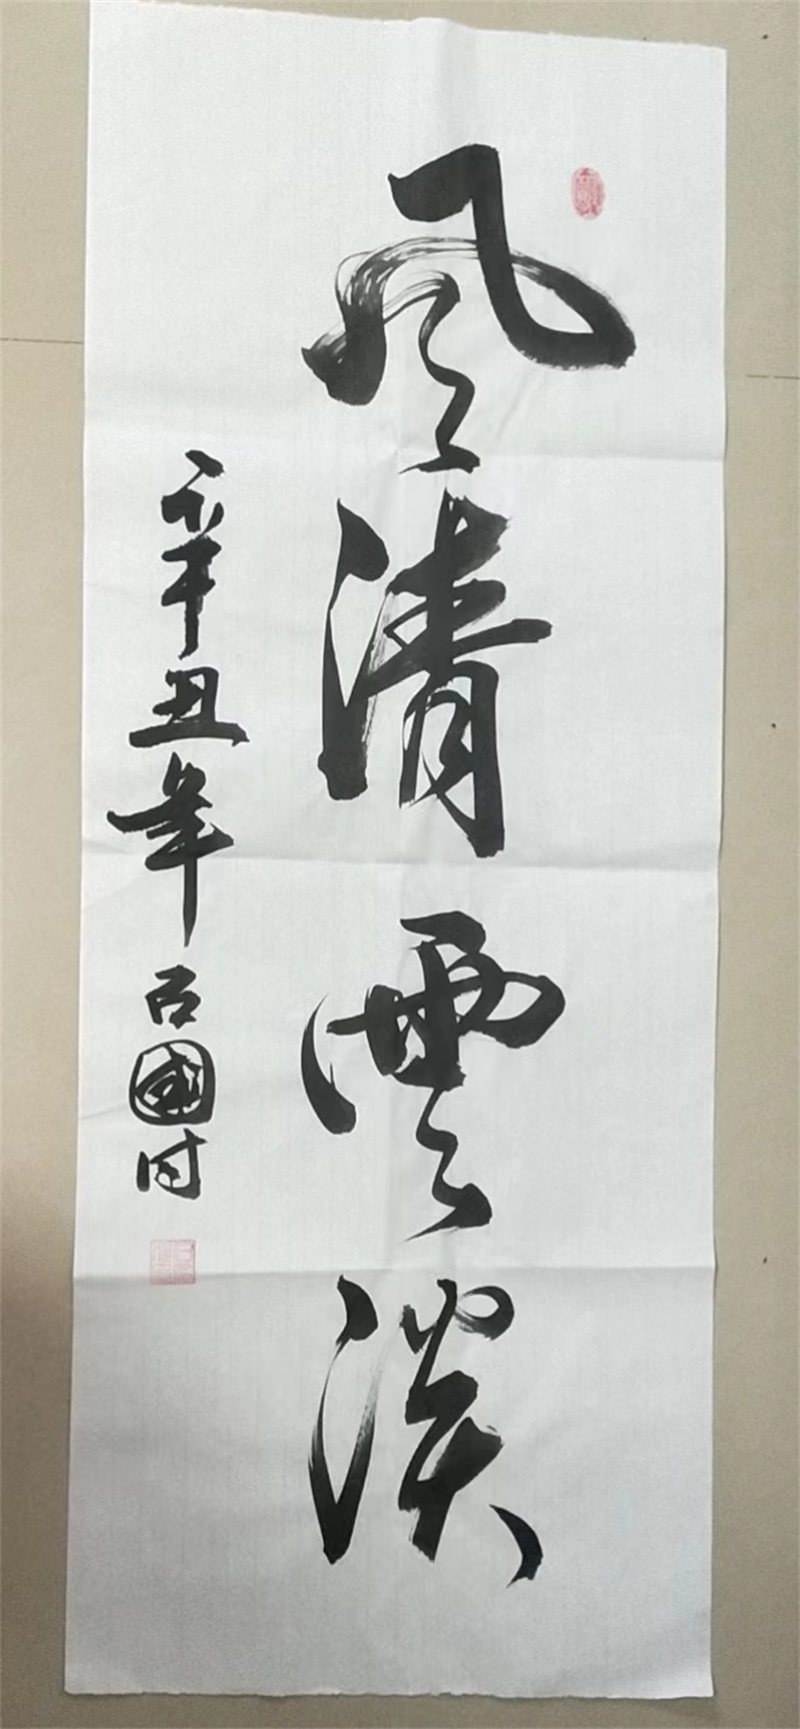 风清雲淡
辛丑年石國付